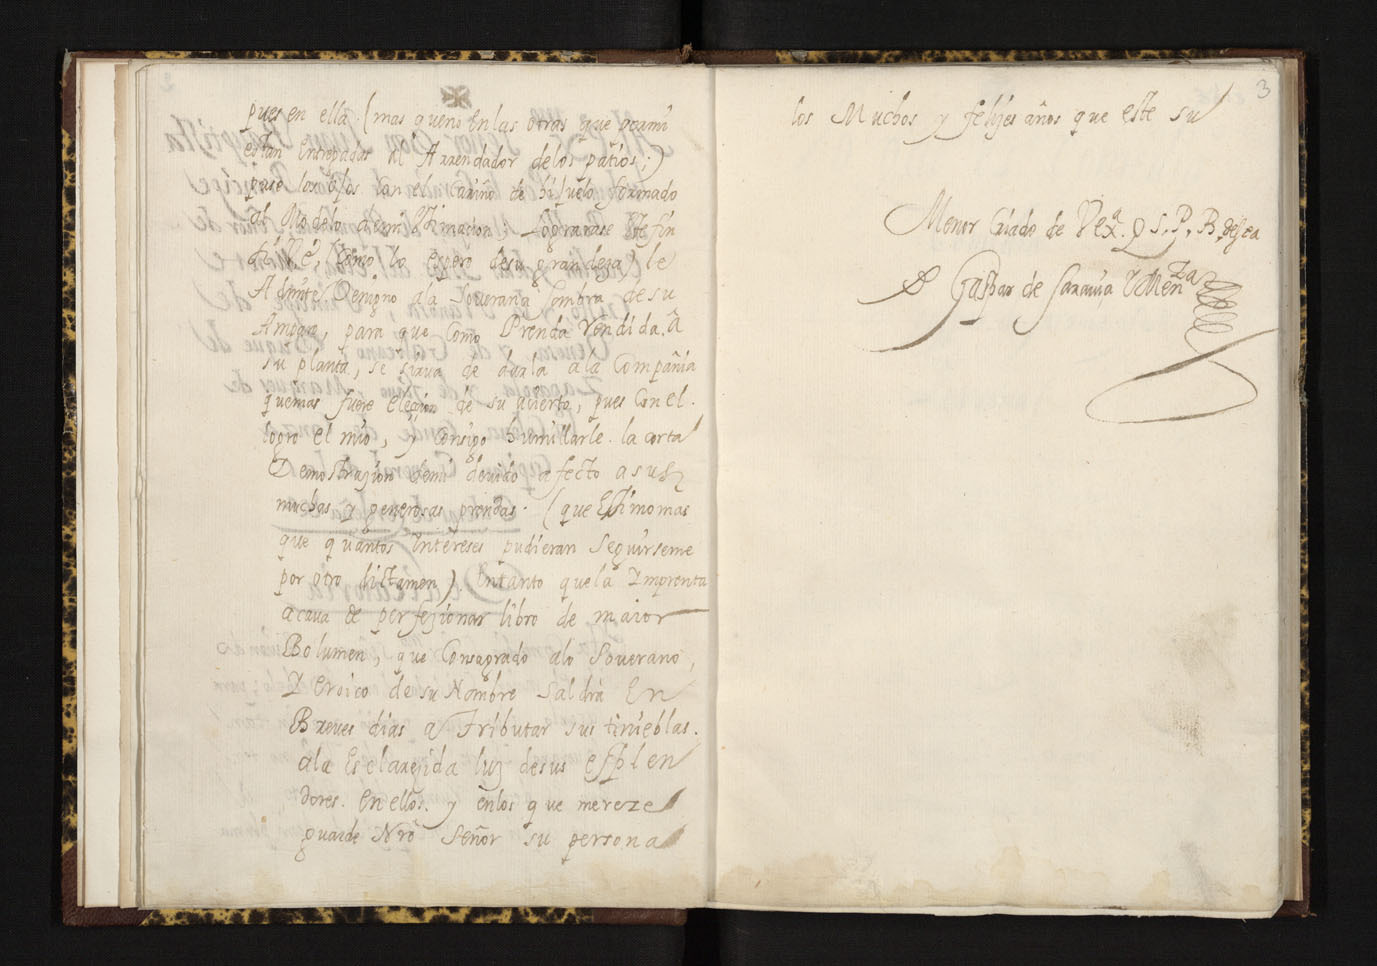 pues en ella (mas que no en las otras que ocami
están entregadas al Arrendador delos patios;)
puse los ojos con el cariño de hijuelo formado
al Modelo demi Ymaginacion, Lograrase Este fin
si V.E. (como lo espero desu grandeza) le
Admite Benigno ala Soverana sombra de su
Amparo, para que como Prenda Rendida. â
su planta, se sirva de darla âla Compañia
quemas fuere elecjion de su acierto, pues Con el.
logro el mio, y consigo humillarle. la corta
Demostrazion demi devido afecto asus
muchas y generosas prendas. (que Estimo mas
que quantos intereses pudieran seguirseme
por otro dictamen) Entanto quela Imprenta
acava de perfejionar libro de maior
Bolumen, que Consagrado alo Soverano,
Y eroico de su Nombre saldrà En
Breves dias a tributar sus tinieblas.
ala Esclarejida luz desus esplen
dores. En ellos. y enlos que mereze
guarde Nrô Señor su persona
3
los Muchos y felijes años que este su
Menor Criado de V exª. Q S. P. B. desea
D Gaspar de Saravia I Menza